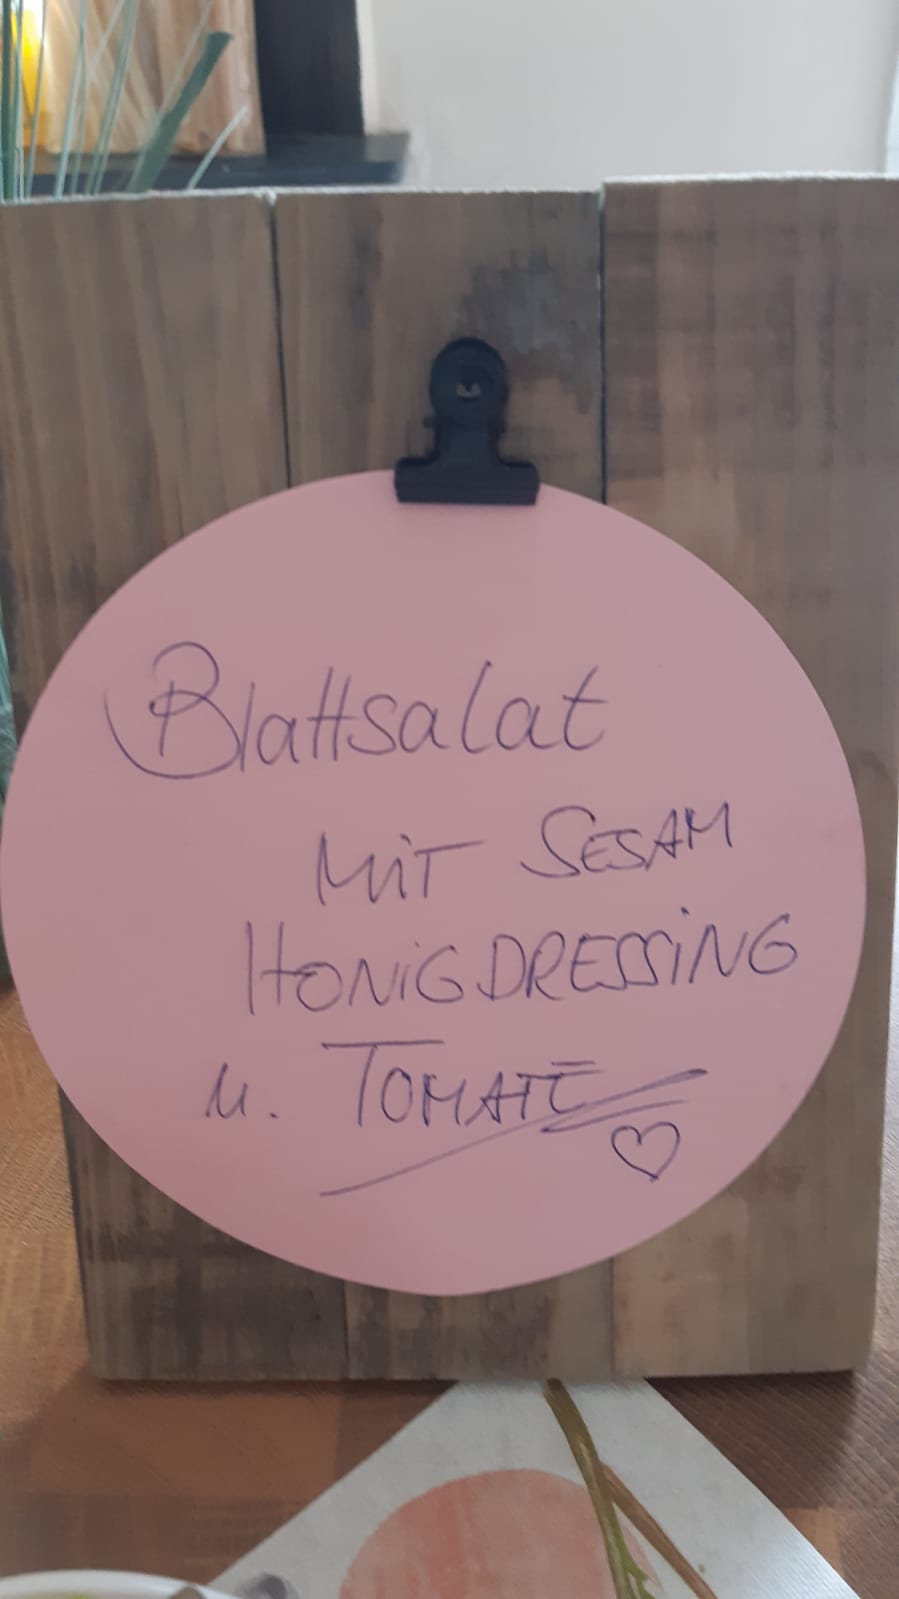 Blattsalat
MiT SESAM
HONiGDRESSiNG
u. TOMATE